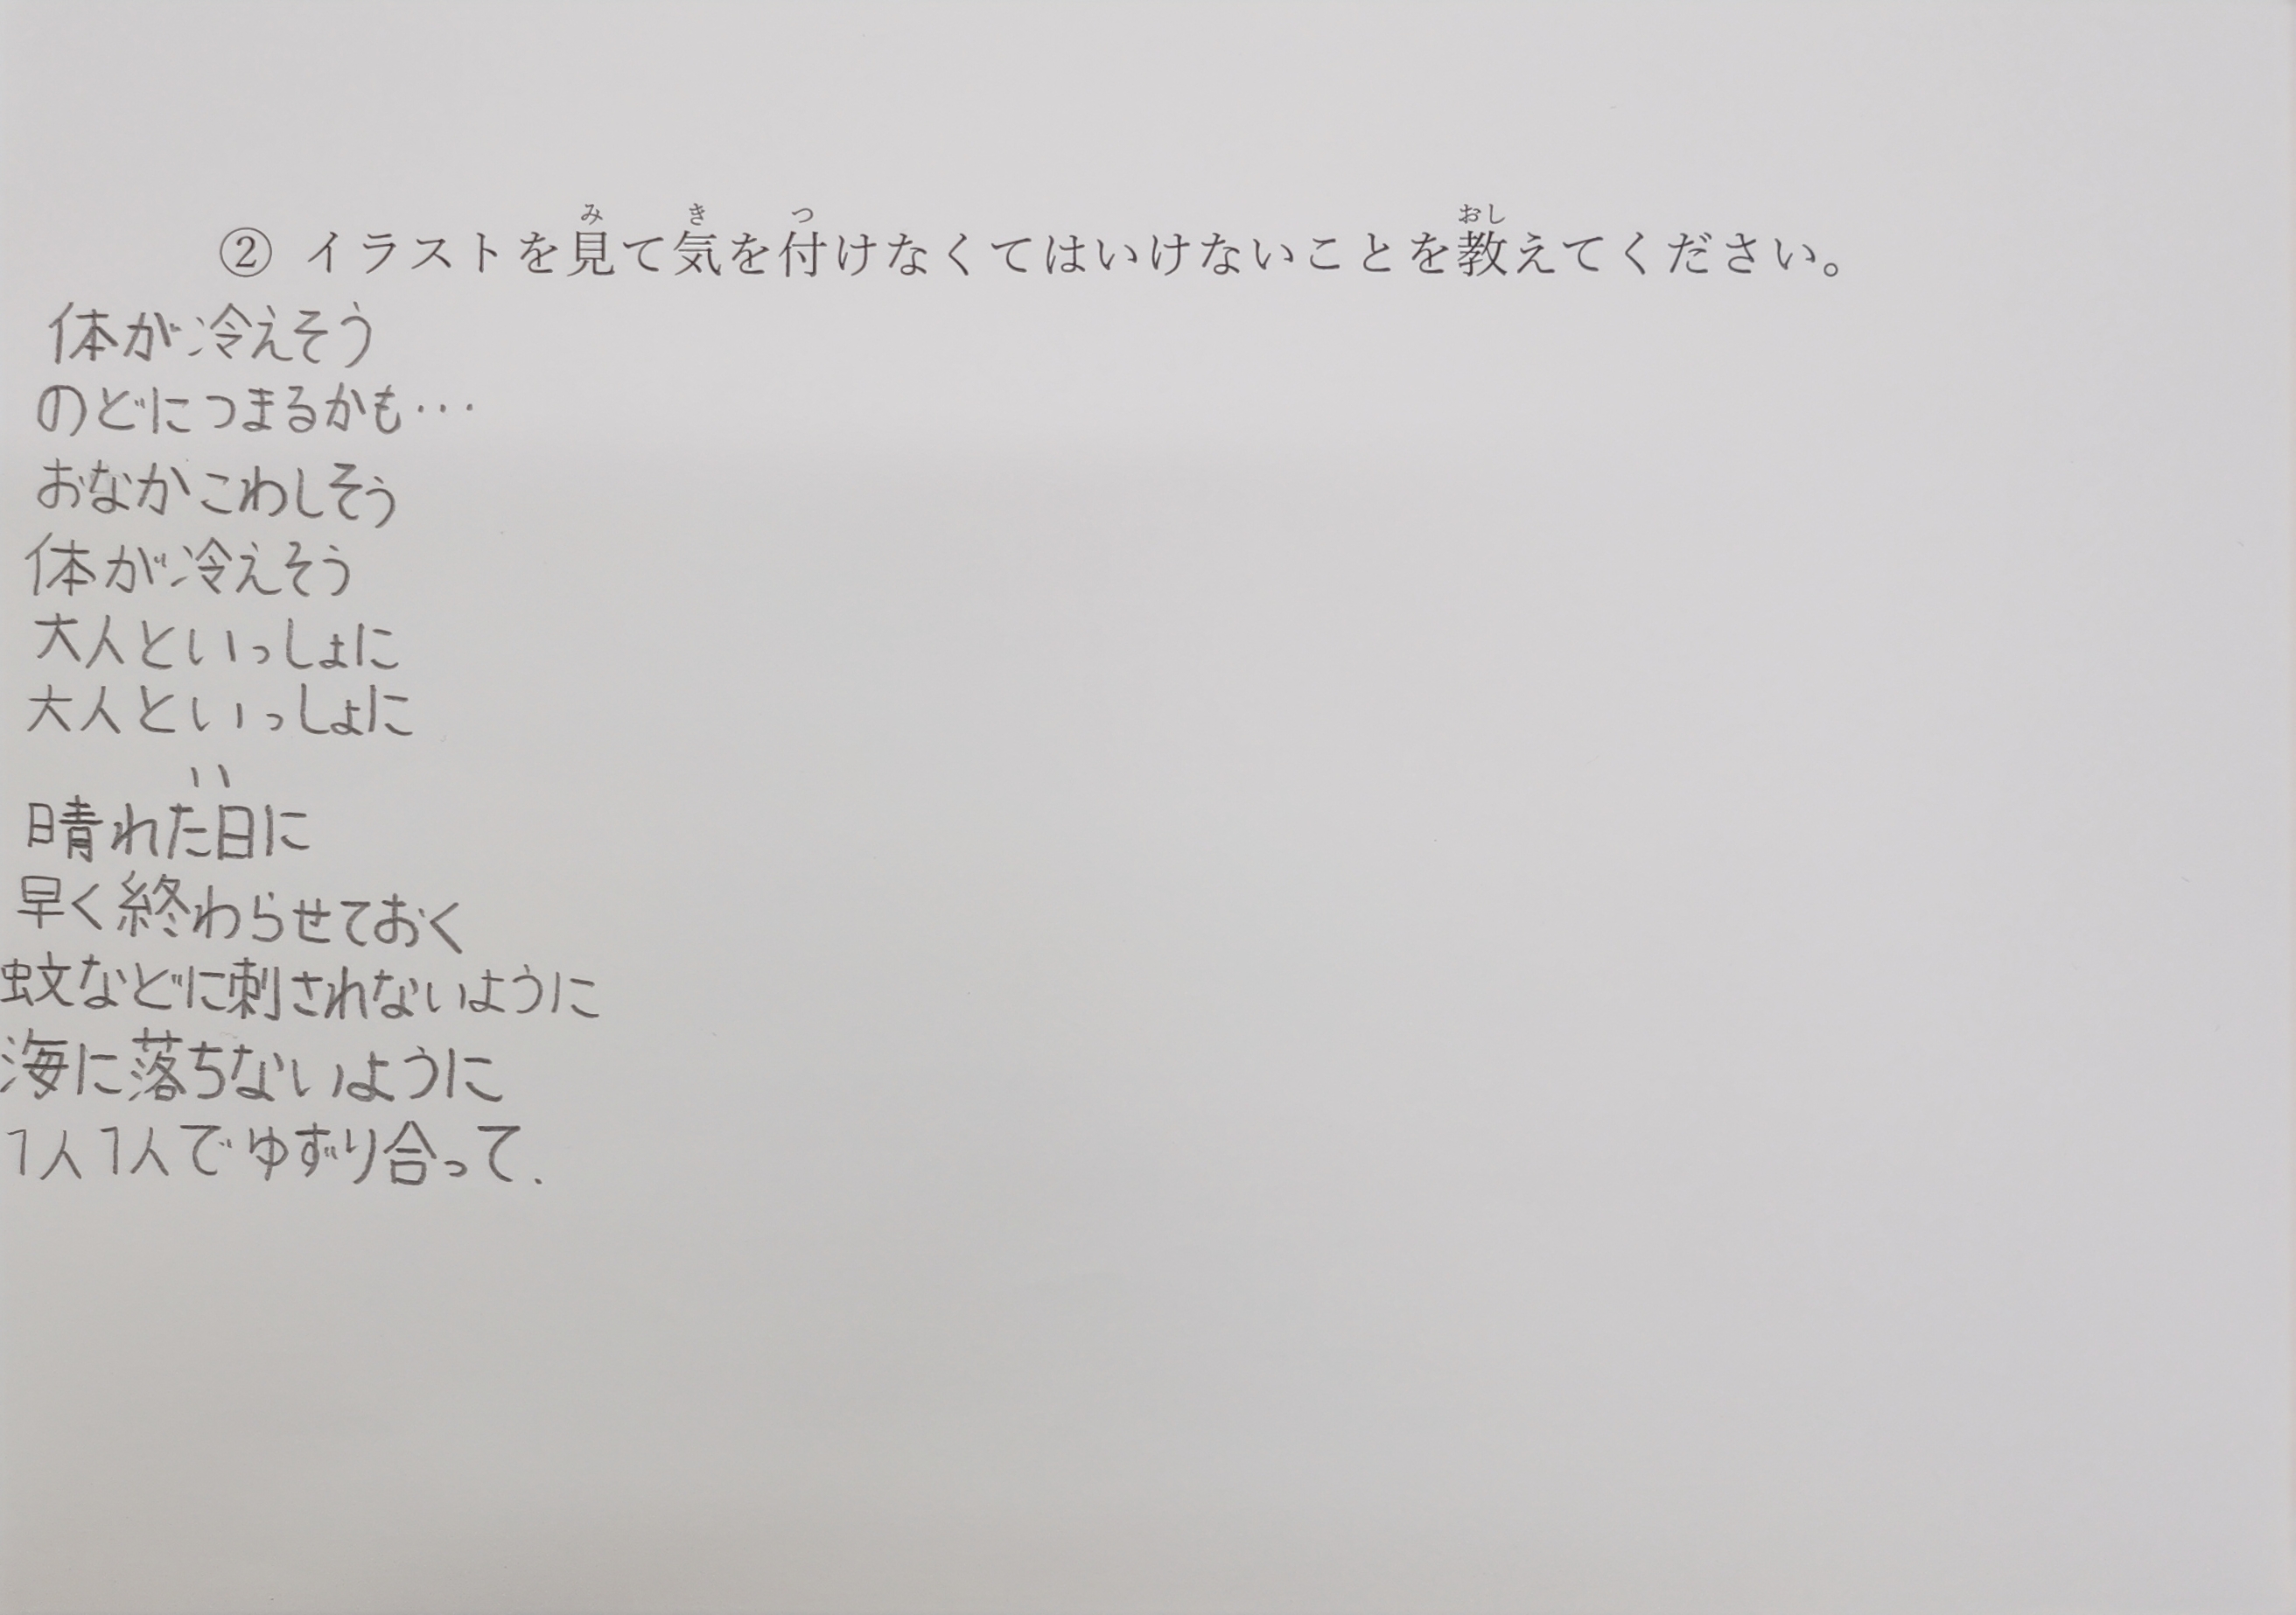 ② イラストを見て気を付けなくてはいけないことを教えてください。
体が冷えそう
のどにつまるかも…
おなかこわしそう
体が冷えそう
大人といっしょに
大人といっしょに
〃
晴れた日に
早く終わらせておく
蚊などに刺されないように
海に落ちないように
1人1人でゆずり合って.